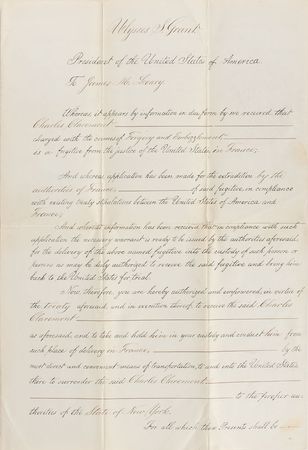 Ulysses S. Grant
President of the United States of America
To James M. Leary
Whereas, it appears by information in due form by me received that
Charles Claremont
charged with the crimes of Forgery and Embezzlement
is a fugitive from the justice of the United States in France;
And whereas application has been made for the extradition by the
authorities of France of said fugitive, in compliance
with existing treaty stipulations between the United States of America and
France;
And whereas information has been received that in compliance with such
application the necessary warrant is ready to be issued by the authorities aforesaid
for the delivery of the above named fugitive into the custody of such person or
persons as may be duly authorized to receive the said fugitive and bring him
back to the United States for trial.
Now, therefore, you are hereby authorized and empowered, in virtue of
the treaty aforesaid, and in execution thereof, to receive the said Charles
Claremont
as aforesaid, and to take and hold him in your custody and conduct him from
such place of delivery in France, by the
most direct and convenient means of transportation, to and into the United States
there to surrender the said Charles Claremont
to the proper au-
thorities of the State of New York.
For all which these Presents shall be